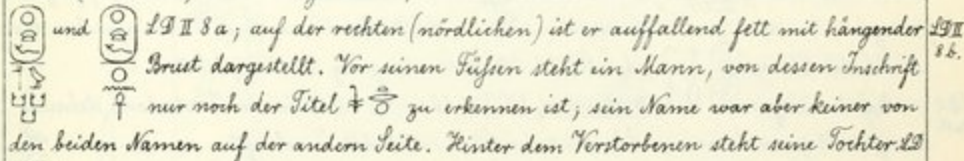 und LD II 8 a; auf der rechten (nördlichen) ist er auffallend fett mit hängender
LD II
8 b.
Brust dargestellt. Vor seinen Füßen steht ein Mann, von dessen Inschrift
nur noch der Titel zu erkennen ist; sein Name war aber keiner von
den beiden Namen auf der andern Seite. Hinter dem Verstorbenen steht seine Tochter LD